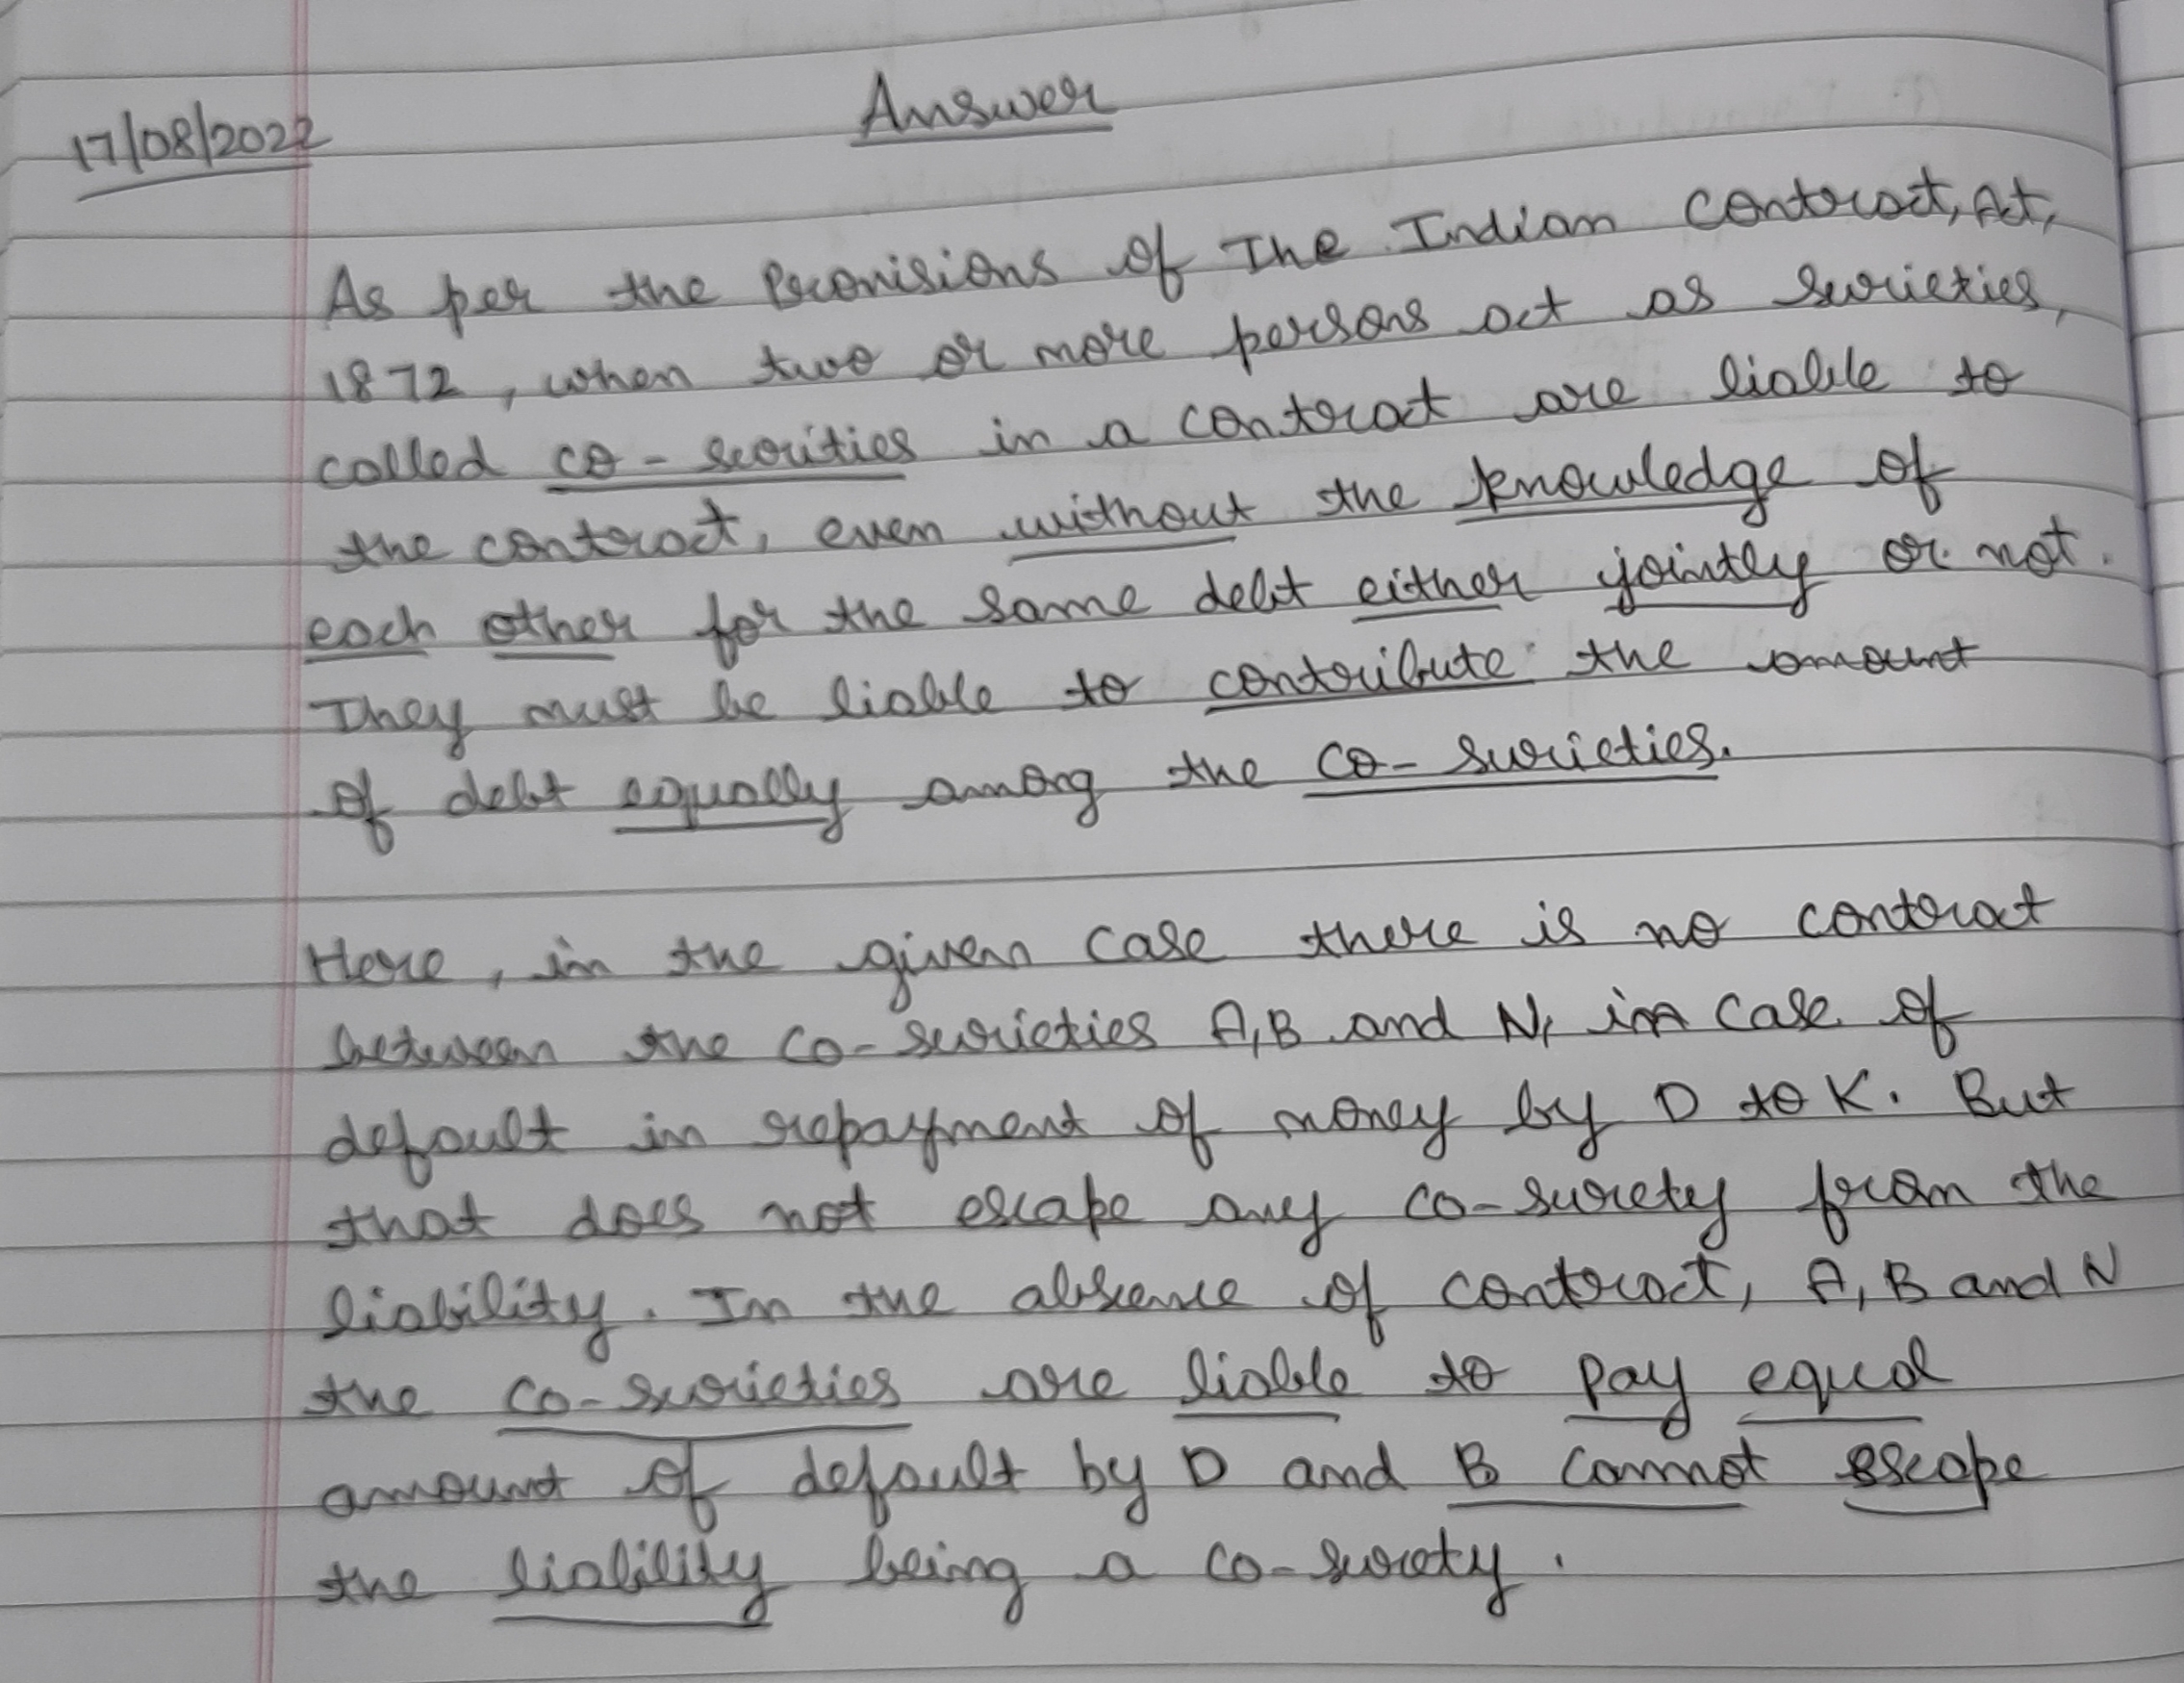 Answer
17/08/2022
As per the Provisions of The Indian Contract, Act,
1872, when two or more persons act as surieties,
called co-seorities in a contract are liable to
the contract, even without the knowledge of
each other for the same debt either jointly or not.
They must be liable to contribute the amount
of debt equally among the co-surieties.
Here, in the given case there is no contract
between the co-surieties A, B and N, in case of
default in repayment of money by D to K. But
that does not escape any co-surety from the
liability. In the absence of contract, A, B and N
the co-surieties are liable to pay equal
amount of default by D and B cannot escape
the liability being a co-surety.